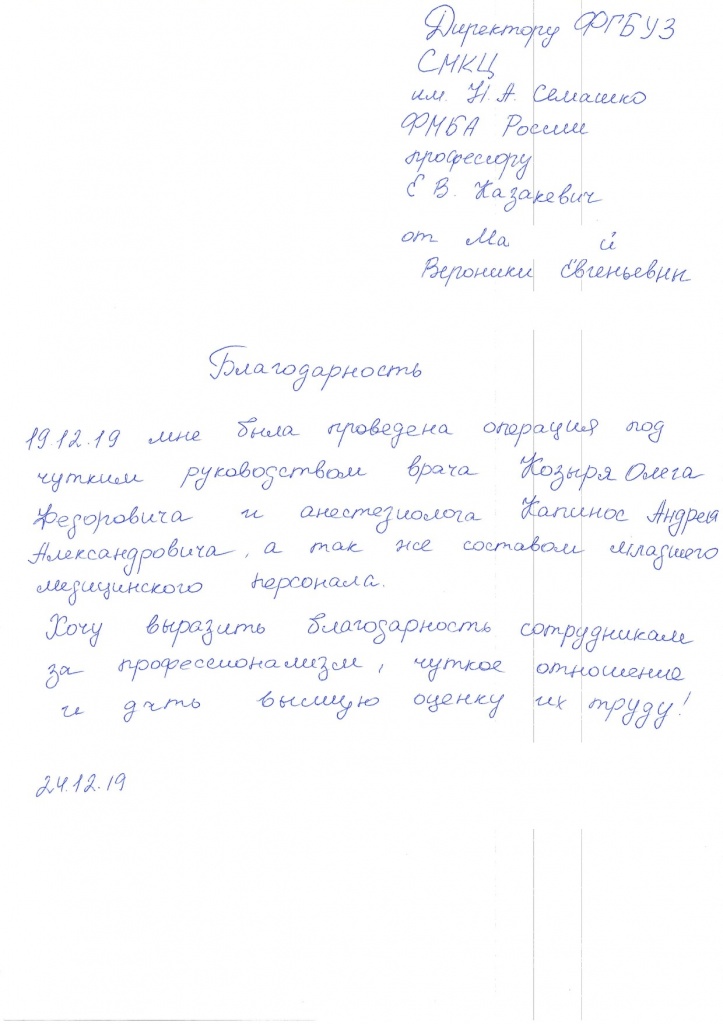 Директору ФГБУЗ
СМКЦ
им. Н.А. Семашко
ФМБА России
профессору
Е В. Казакевич
от Ма й
Вероники Евгеньевны
Благодарность
19.12.19 мне была проведена операция под
чутким руководством врача Козыря Олега
Федоровича и анестезиолога Капинос Андрея
Александровича, а так же составом младшего
медицинского персонала.
Хочу выразить благодарность сотрудникам
за профессионализм, чуткое отношение
и дать высшую оценку их труду!
24.12.19